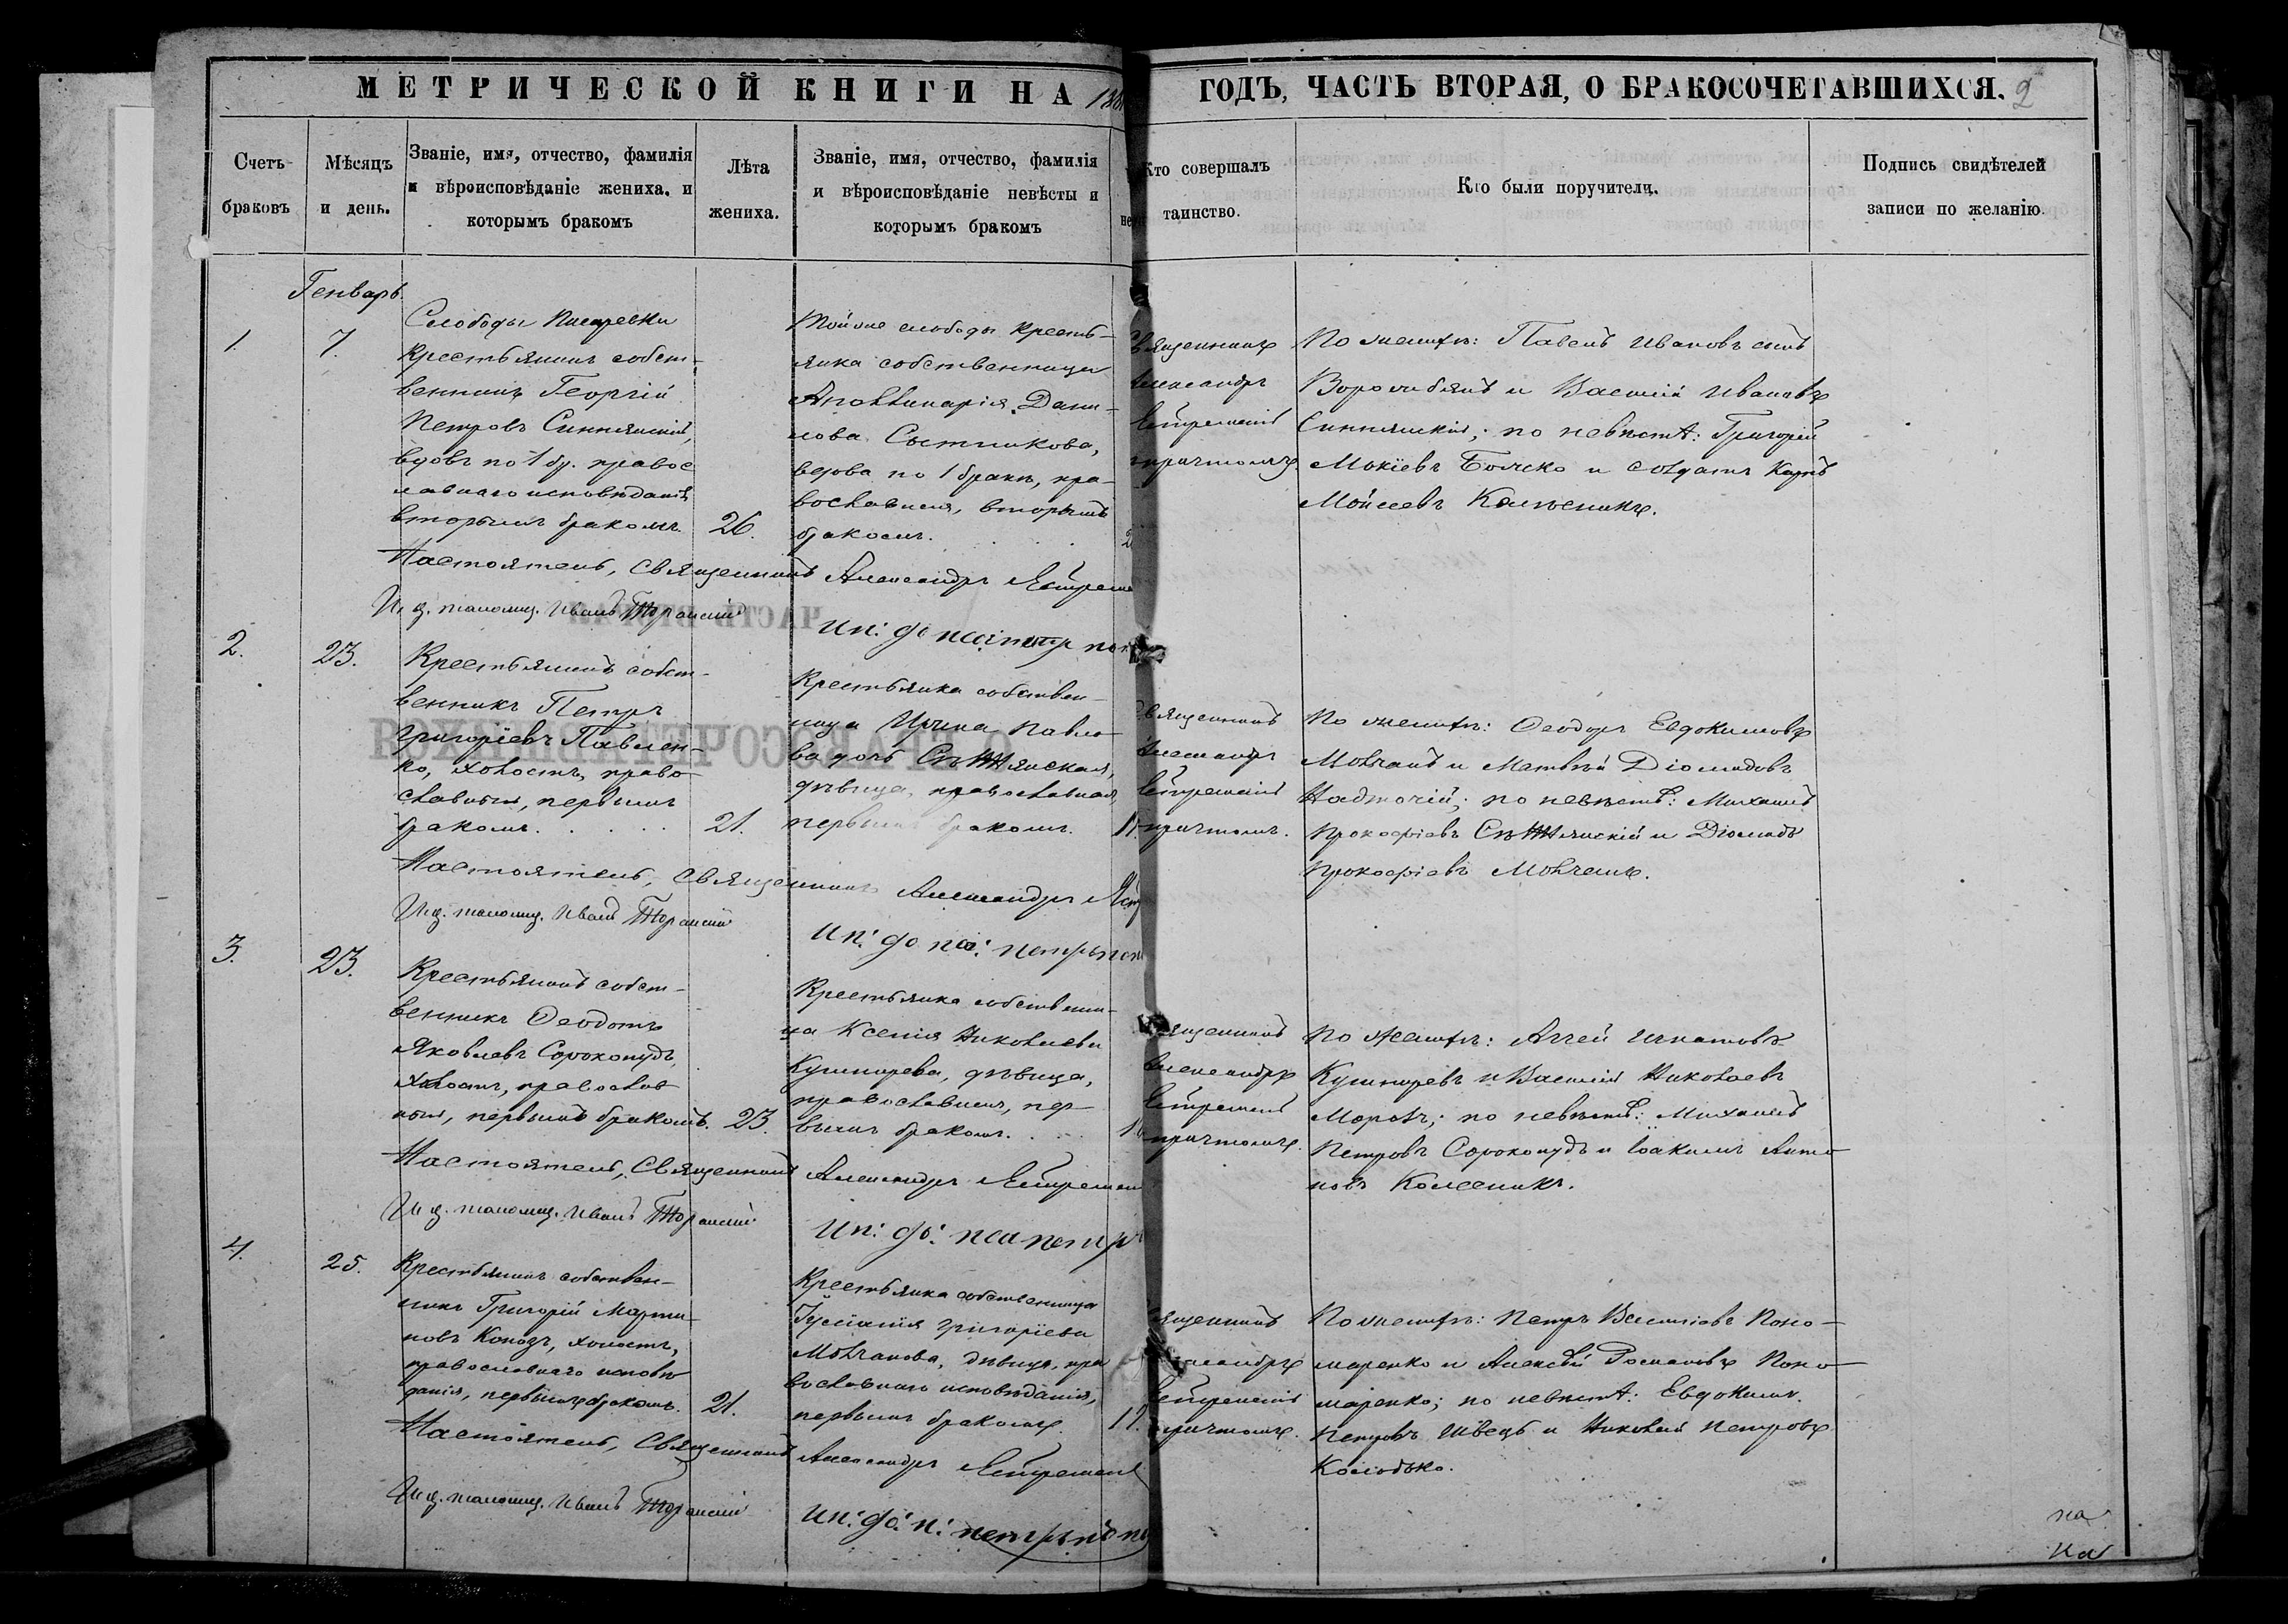 МЕТРИЧЕСКОЙ КНИГИ НА 188
ГОДЪ, ЧАСТЬ ВТОРАЯ, О БРАКОСОЧЕТАВШИХСЯ. 2
Счетъ браковъ
Мѣсяцъ и день.
Званіе, имя, отчество, фамилія
и вѣроисповѣданіе жениха. и
которымъ бракомъ
Лѣта
жениха.
Званіе, имя, отчество, фамилія
и вѣроисповѣданіе невѣсты и
которымъ бракомъ
Кто совершалъ
таинство.
Кто были поручители.
Подпись свидѣтелей
записи по желанію.
Генварь
1.
7.
Слободы Писаревки
крестьянинъ собст-
венникъ Георгій
Петровъ Синнянскій,
вдовъ по 1 бр. правос
лавнаго исповѣданія
вторымъ бракомъ.
26.
Той же слободы кресть-
янка собственница
Аполлинарія Дани-
лова Сытникова,
вдова по 1 бракѣ, пра-
вославная, вторымъ
бракомъ.
Священникъ
Александръ
причтомъ
По женихѣ: Павелъ Ивановъ сынъ
и Василій Ивановъ
Синнянскій; по невѣстѣ: Григорій
Мокіевъ Бойко и солдатъ Карпъ
Моисеевъ Колесникъ.
Настоятель, Священникъ Александръ
И. д. псаломщ. Иванъ
2.
23.
Крестьянинъ собст-
венникъ Петръ
Григоріевъ Павлен-
ко, холостъ, право
славный, первымъ
бракомъ.
21.
Крестьянка собствен-
ница Ирина Павло
ва дочь
дѣвица, православная,
первымъ бракомъ.
Священникъ
Александръ
причтомъ.
По женихѣ: Ѳеодоръ Евдокимовъ
Молчанъ и Матвѣй Діомидовъ
Надточій; по невѣстѣ: Михаилъ
Прокофіевъ и Діомидъ
Прокофіевъ Молчанъ.
Настоятель, Священникъ Александръ
И. д. псаломщ. Иванъ
3.
23.
Крестьянинъ собст-
венникъ Ѳеодотъ
Яковлевъ Сорокопудъ,
холостъ, православ
ный, первымъ бракомъ.
23.
Крестьянка собственни-
ца Ксенія Николаева
Кушнарева, дѣвица,
православная, пер-
вымъ бракомъ.
Александръ
причтомъ.
По женихѣ: Аггей Игнатовъ
Кушнаревъ и Василій Николаевъ
Морозъ; по невѣстѣ: Михаилъ
Петровъ Сорокопудъ и Іоакимъ Анто
новъ Колесникъ.
Настоятель, Священникъ Александръ
И. д. псаломщ. Иванъ
4.
25.
Крестьянинъ собствен-
никъ Григорій Марти-
новъ холостъ,
православнаго исповѣ
данія, первымъ бракомъ.
21.
Крестьянка собственница
Іуліанія Григоріева
Молчанова, дѣвица, пра
вославнаго исповѣданія,
первымъ бракомъ.
17.
причтомъ.
По женихѣ: Петръ Василіевъ Поно-
маренко и Алексѣй Романовъ Поно
маренко; по невѣстѣ: Евдокимъ
Петровъ Швецъ и Николай Петровъ
Колодько.
Настоятель, Священникъ Александръ
И. д. псаломщ. Иванъ
на